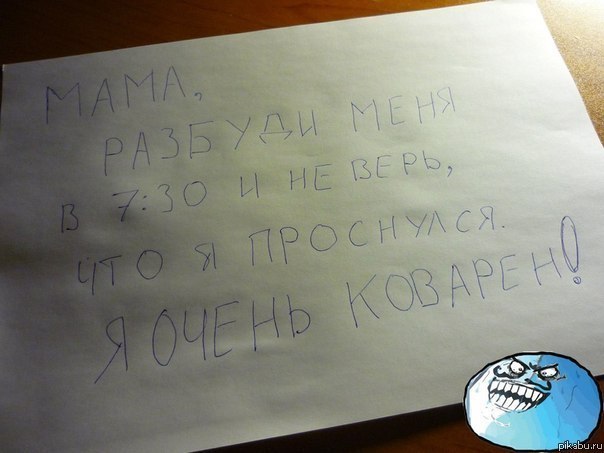 МАМА,
РАЗБУДИ МЕНЯ
В 7:30 И НЕ ВЕРЬ,
ЧТО Я ПРОСНУЛСЯ.
Я ОЧЕНЬ КОВАРЕН!
pikabu.ru